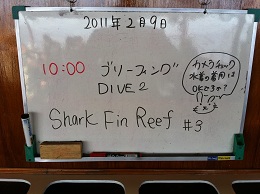 2011年2月9日
10:00 ブリーフィング
DIVE 2
Shark Fin Reef #3
カメラチェック
水着の着用は
OKですか?